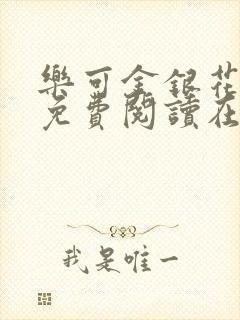 樂可金銀花
免費閱讀在
我是唯一